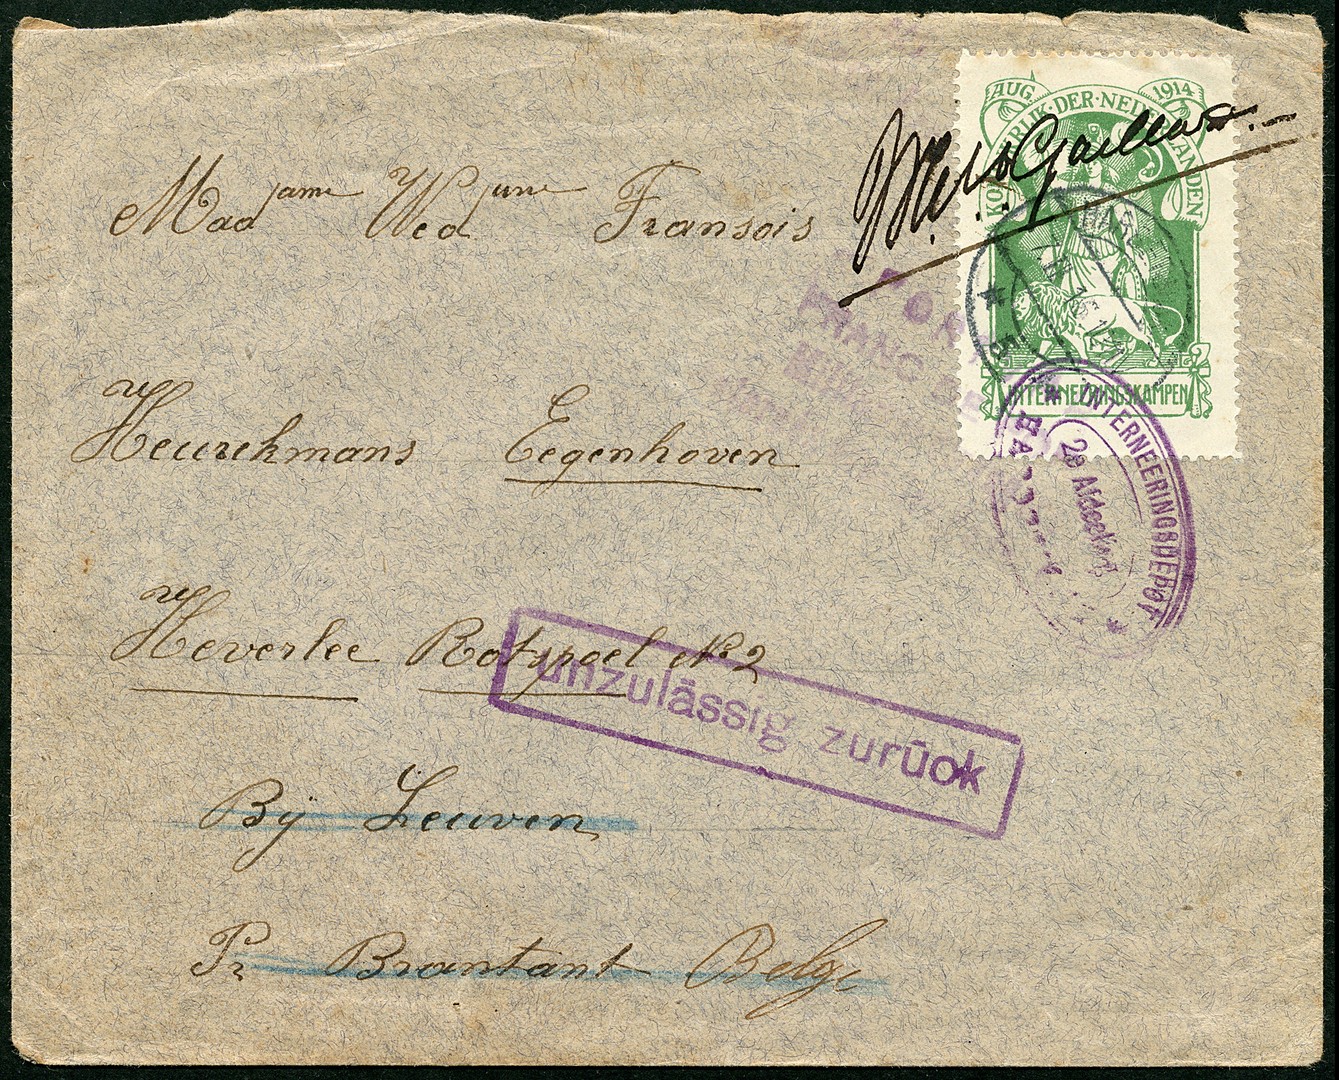 AUG. 1914
KONINKRIJK·DER·NEDERLANDEN
INTERNEERINGSKAMPEN
Madame Wed Fransois
Heurekmans Eegenhoven
Heverlee Rotspoel No 2
Bij Leuven
Pr Brantant Belge
PORT
FRANC
INTERNEERINGSDEPOT
2e Afdeeling
unzulässig zurück